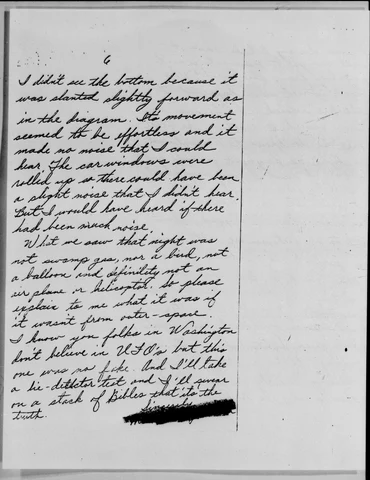 6
I didn't see the bottom because it
was slanted slightly forward as
in the diagram. Its movement
seemed to be effortless and it
made no noise that I could
hear. The car windows were
rolled up so there could have been
a slight noise that I didn't hear.
But I would have heard if there
had been much noise.
What we saw that night was
not swamp gas, nor a bird, not
a balloon and definitily not an
air plane or helicoptor. So please
explain to me what it was if
it wasn't from outer-space.
I know you folks in Washington
don't believe in UFO's but this
one was no fake. And I'll take
a lie-detector test and I'll swear
on a stack of Bibles that its the
truth.
Sincerely